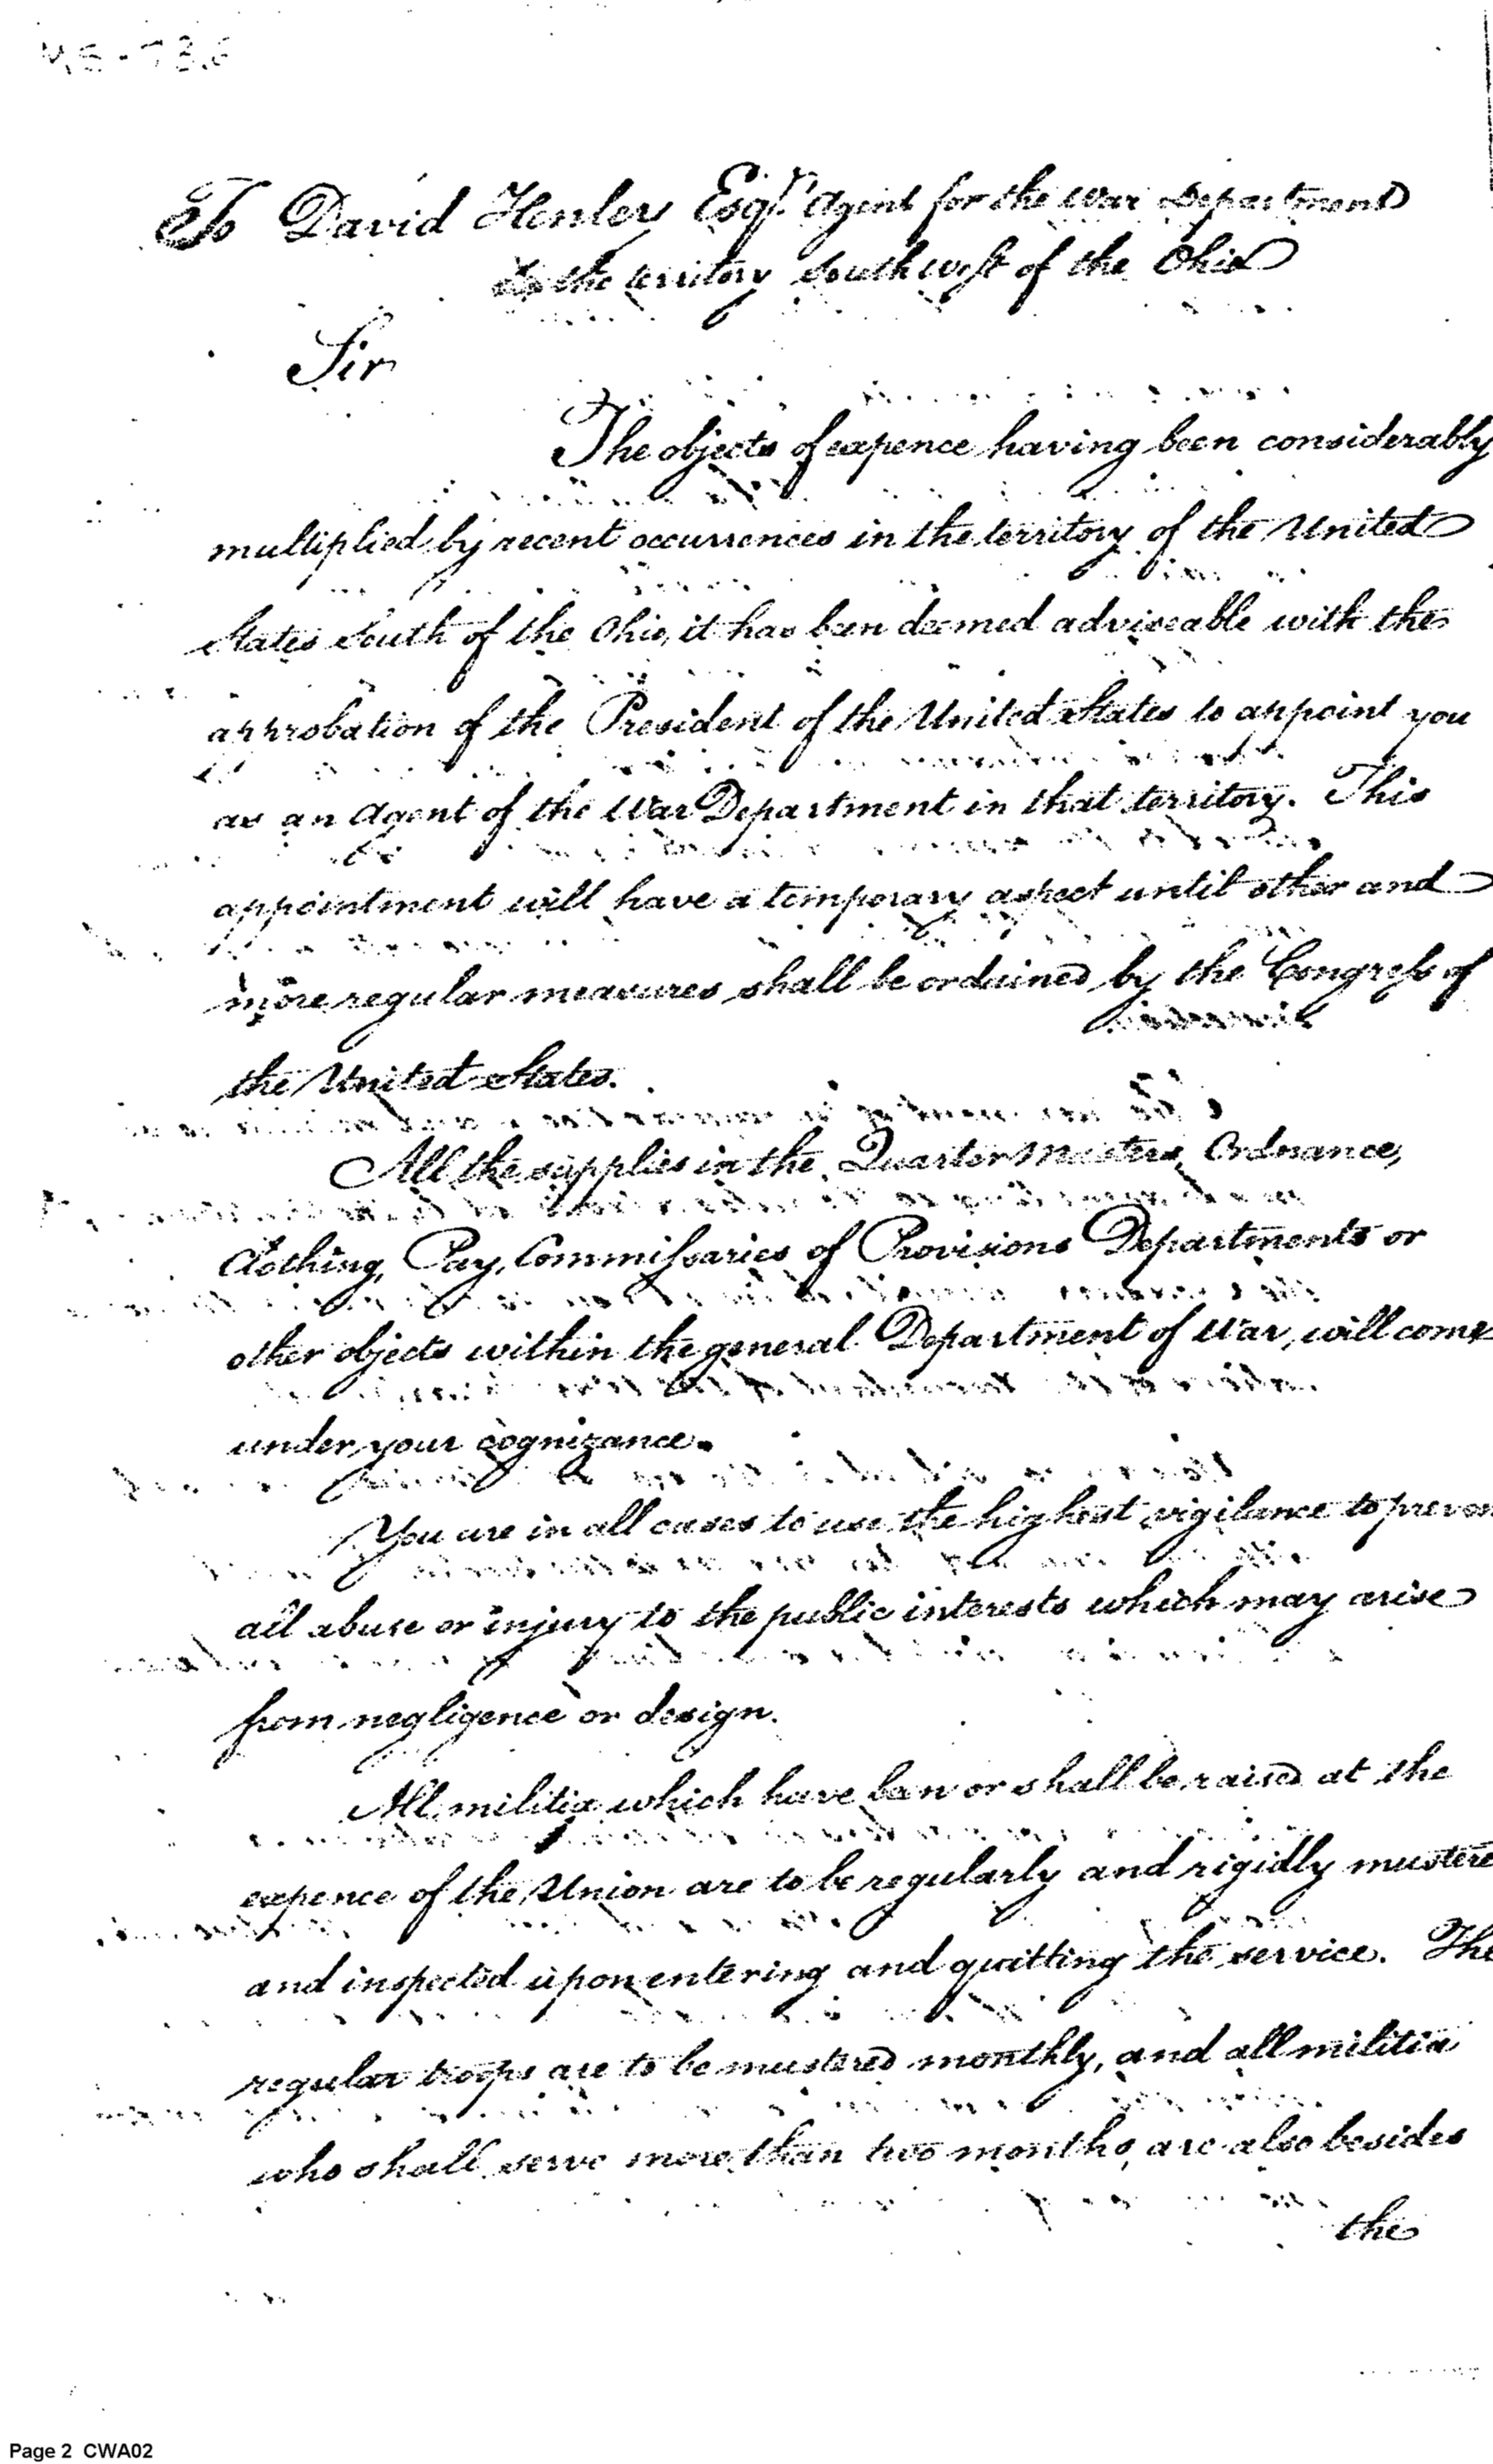 To David Henley Esqr. Agent for the War Department
In the territory South west of the Ohio
Sir
The objects of expence having been considerably
multiplied by recent occurrences in the territory of the United
States South of the Ohio, it has been deemed adviseable with the
approbation of the President of the United States to appoint you
as an Agent of the War Department in that territory. This
appointment will have a temporary aspect until other and
more regular measures shall be ordained by the Congress of
the United States.
All the supplies in the Quarter Masters, Ordnance,
Clothing, Pay, Commissaries of Provisions Departments or
other objects within the general Department of War, will come
under your cognizance.
You are in all cases to use the highest vigilance to preven
all abuse or injury to the public interests which may arise
from negligence or design.
All militia which have been or shall be raised at the
expence of the Union are to be regularly and rigidly mustere
and inspected upon entering and quitting the service. The
regular troops are to be mustered monthly, and all militia
who shall serve more than two months are also besides
the
Page 2 CWA02